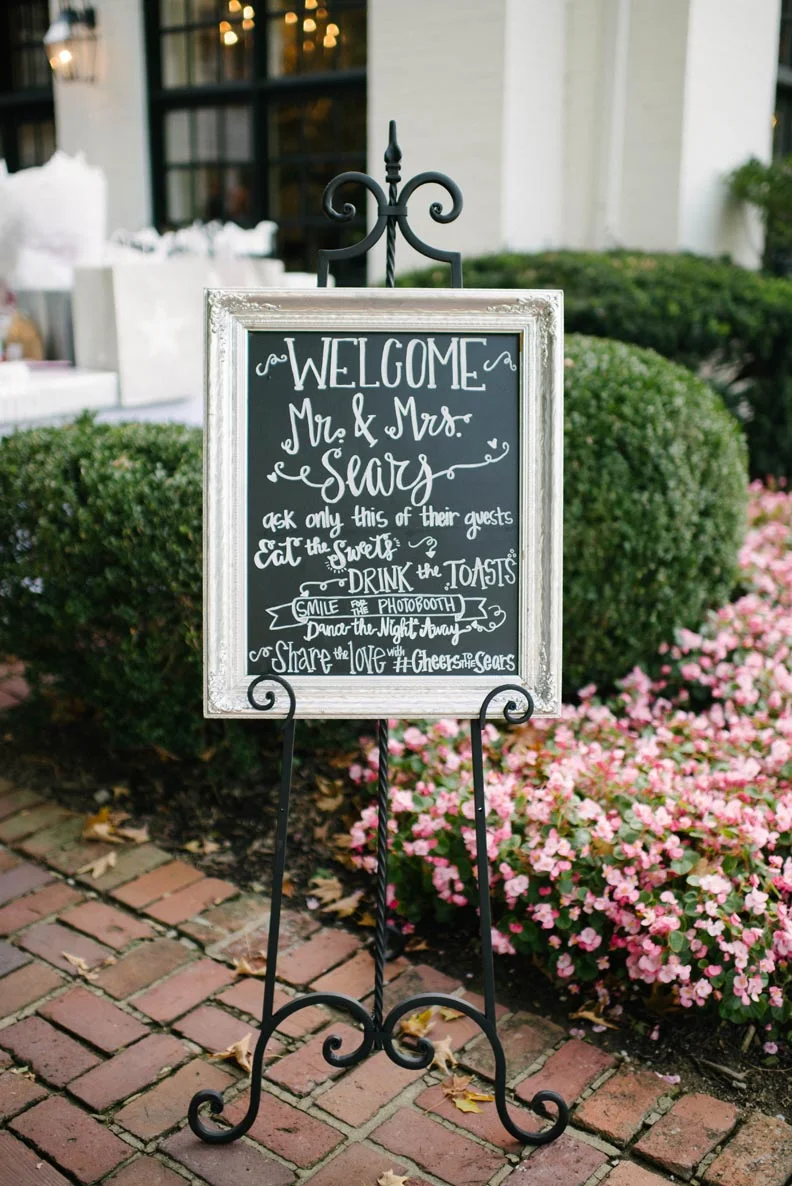 WELCOME
Mr. & Mrs.
Sears
ask only this of their guests
Eat the Sweets
DRINK the TOASTS
SMILE FOR THE PHOTOBOOTH
Dance the Night Away
Share the love with #CheersToTheSears